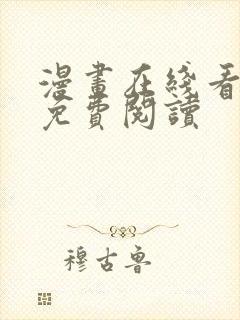 漫畫在綫看
免費閱讀
穆古魯